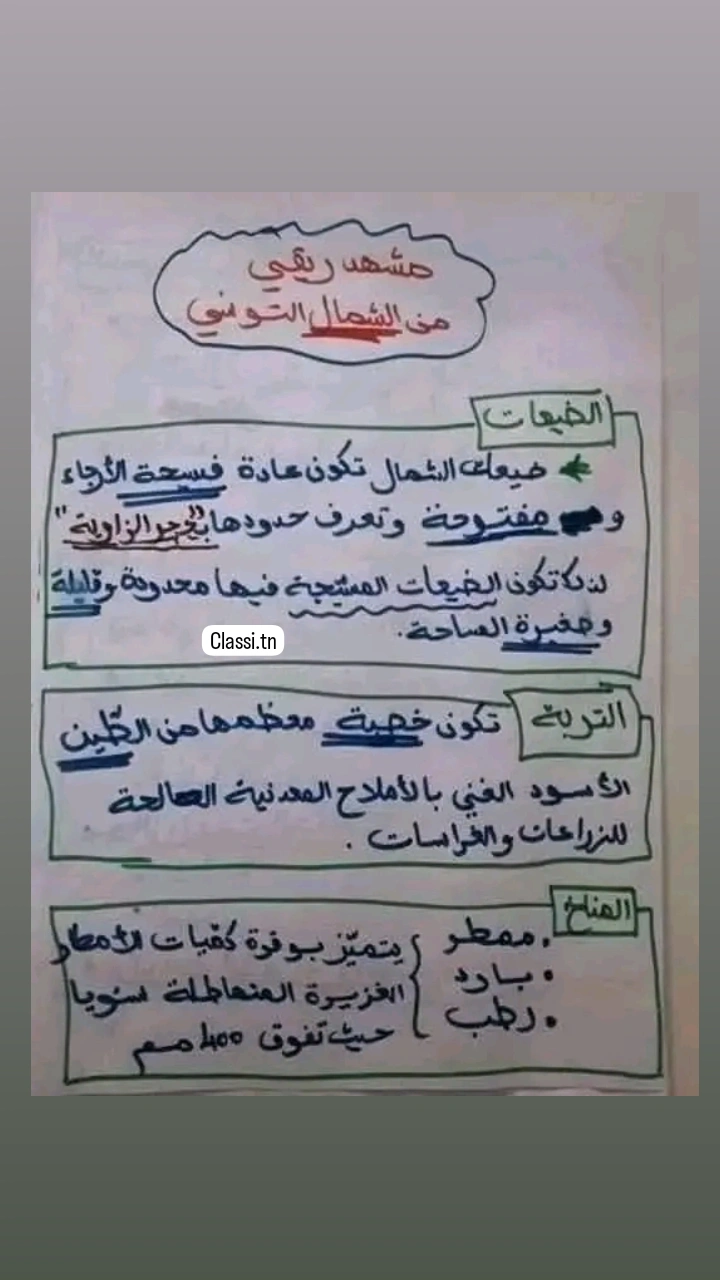 مشهد ريفي
من الشمال التونسي
الضيعات
ضيعات الشمال تكون عادة فسحة الأرجاء
و مفتوحة وتعرف حدودها بـ"حجر الزاوية"
لذلك تكون الضيعات المسيّجة فيها محدودة وقليلة
وصغيرة المساحة.
Classi.tn
التربة
تكون خصبة معظمها من الطّين
الأسود الغني بالأملاح المعدنية الصالحة
للزراعات والغراسات .
المناخ
. ممطر
. بارد
. رطب
يتميّز بوفرة كمّيات الأمطار
الغزيرة المتهاطلة سنويا
حيث تفوق 400 مم